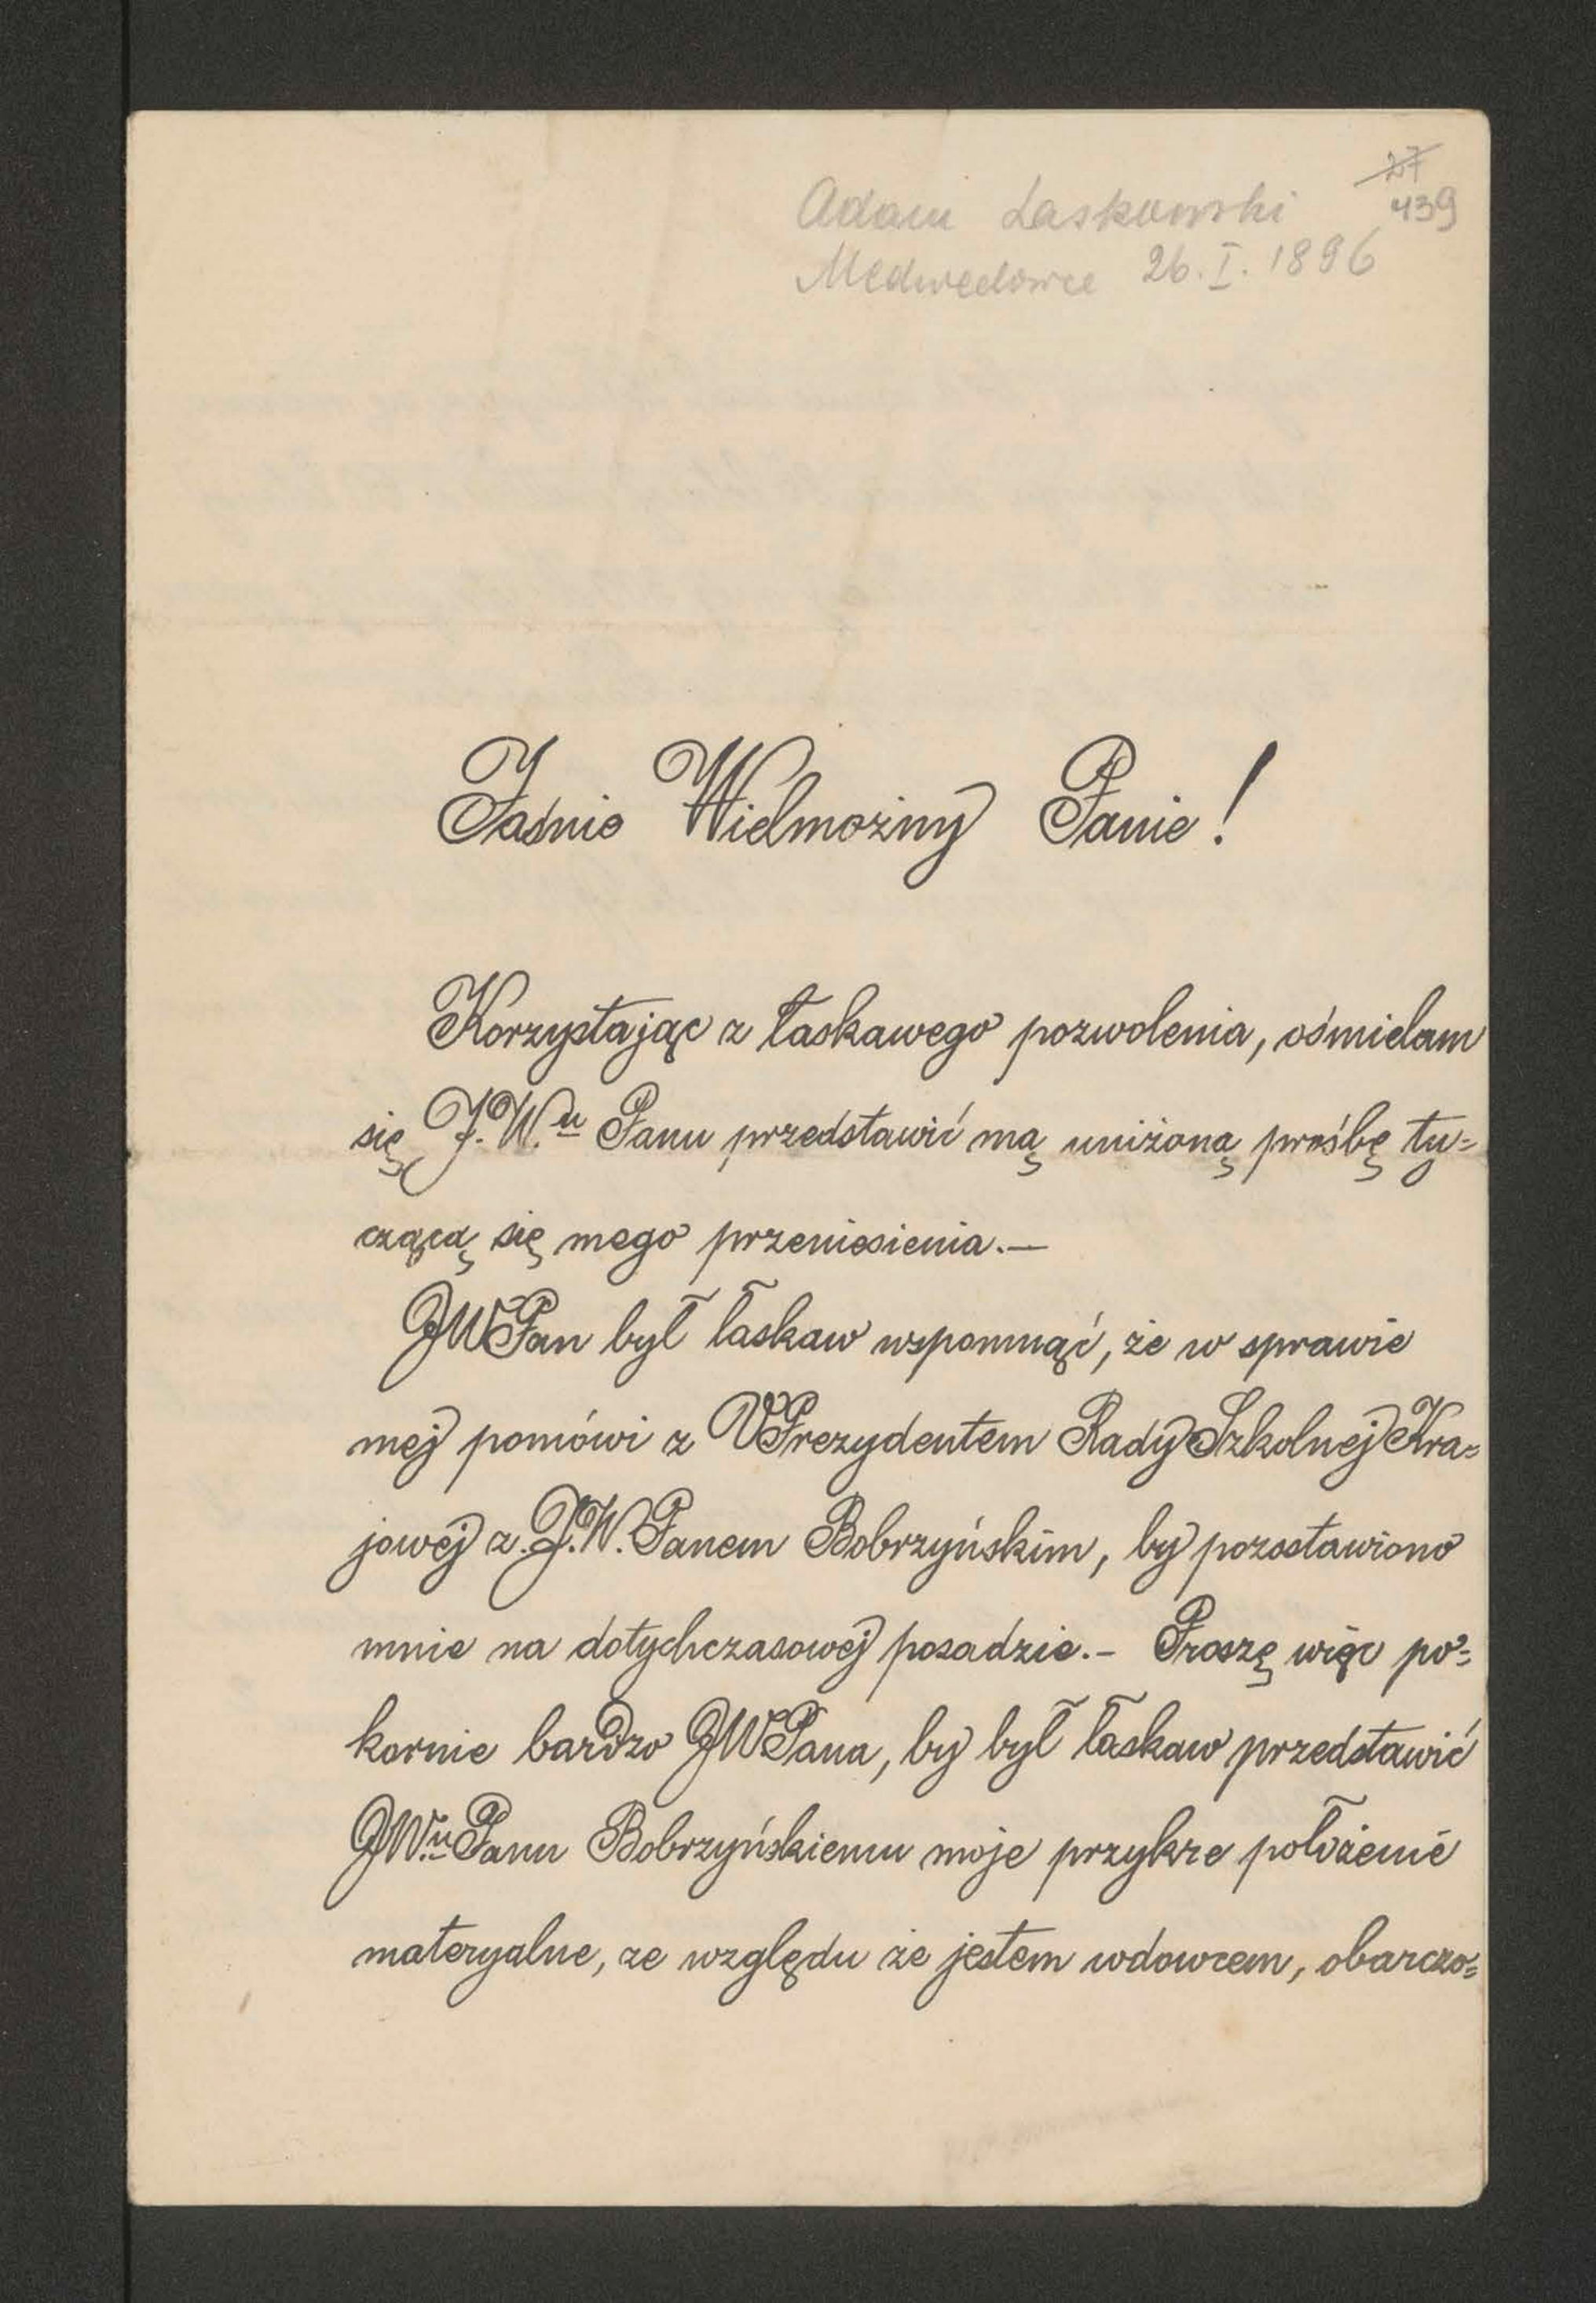 27
439
Adam Laskowski
Medwedowce 26. I. 1896
Jaśnie Wielmożny Panie!
Korzystając z łaskawego pozwolenia, ośmielam
się J. W.u Panu przedstawić mą uniżoną prośbę ty=
czącą się mego przeniesienia.—
JWPan był łaskaw wspomnąć, że w sprawie
mej pomówi z VPrezydentem Rady Szkolnej Kra=
jowej z. J.W. Panem Bobrzyńskim, by pozostawiono
mnie na dotychczasowej posadzie.– Proszę więc po=
kornie bardzo JWPana, by był łaskaw przedstawić
JW.u Panu Bobrzyńskiemu moje przykre położenie
materyalne, ze względu że jestem wdowcem, obarczo=